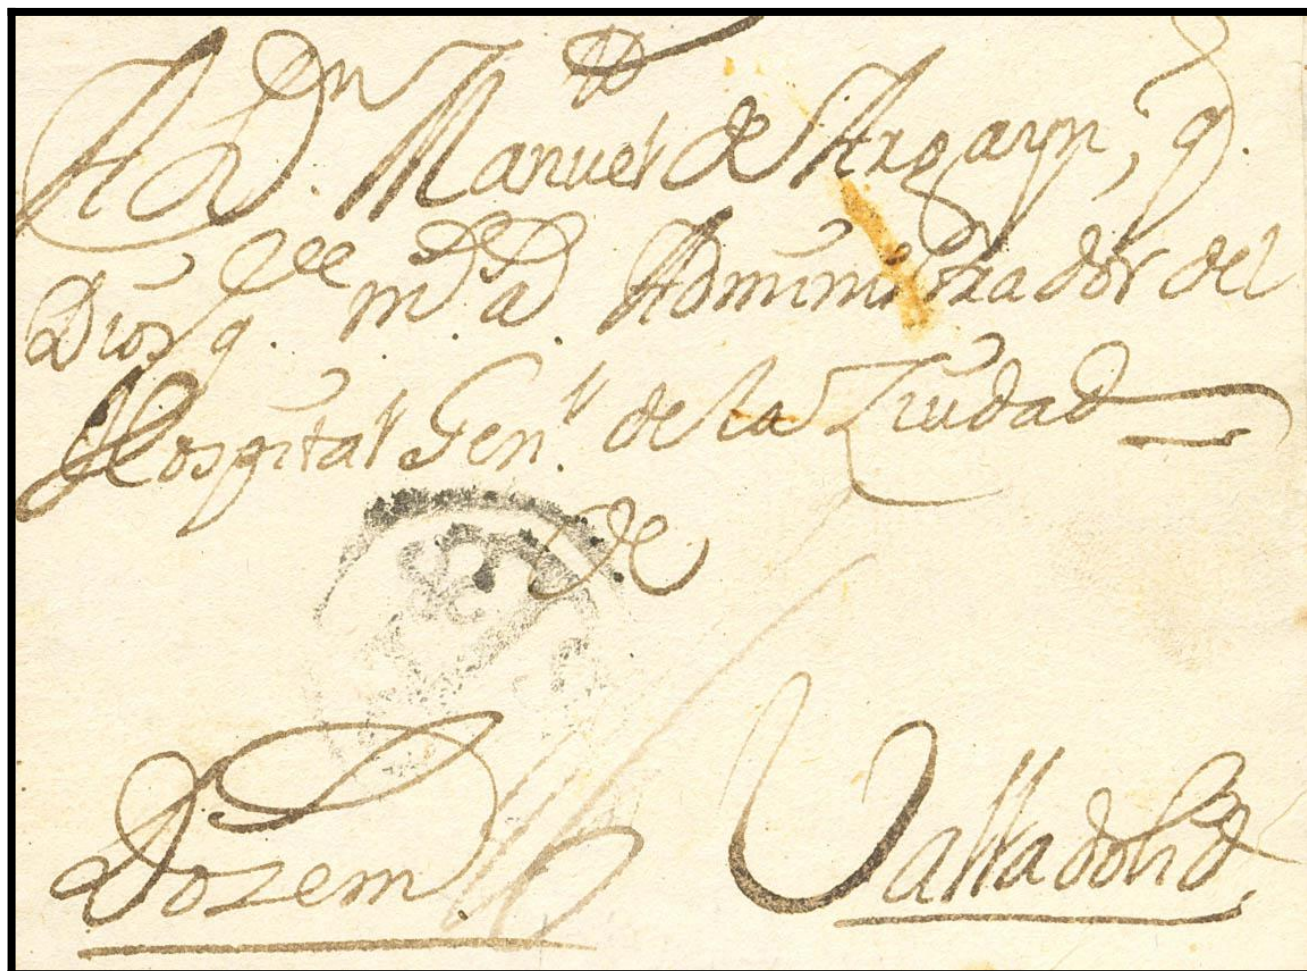 A Dn. Manuel de Argayn, q.
Dios g.e m.s a.s Administrador del
Hospital Gen.l de la Ziudad
de
Valladolid